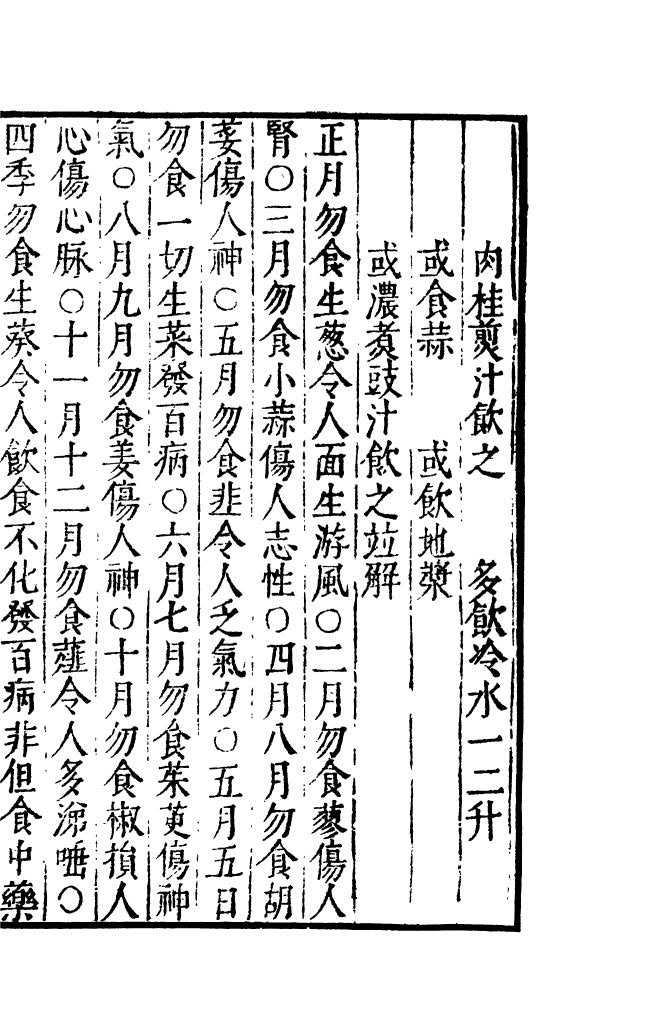 肉桂煎汁飲之　　多飲冷水一二升
或食蒜　　或飲地漿
或濃煑豉汁飲之並解
正月勿食生葱令人面生游風○二月勿食蓼傷人
腎○三月勿食小蒜傷人志性○四月八月勿食胡
荽傷人神○五月勿食韭令人乏氣力○五月五日
勿食一切生菜發百病○六月七月勿食茱萸傷神
氣○八月九月勿食姜傷人神○十月勿食椒損人
心傷心脉○十一月十二月勿食薤令人多涕唾○
四季勿食生葵令人飲食不化發百病非但食中藥